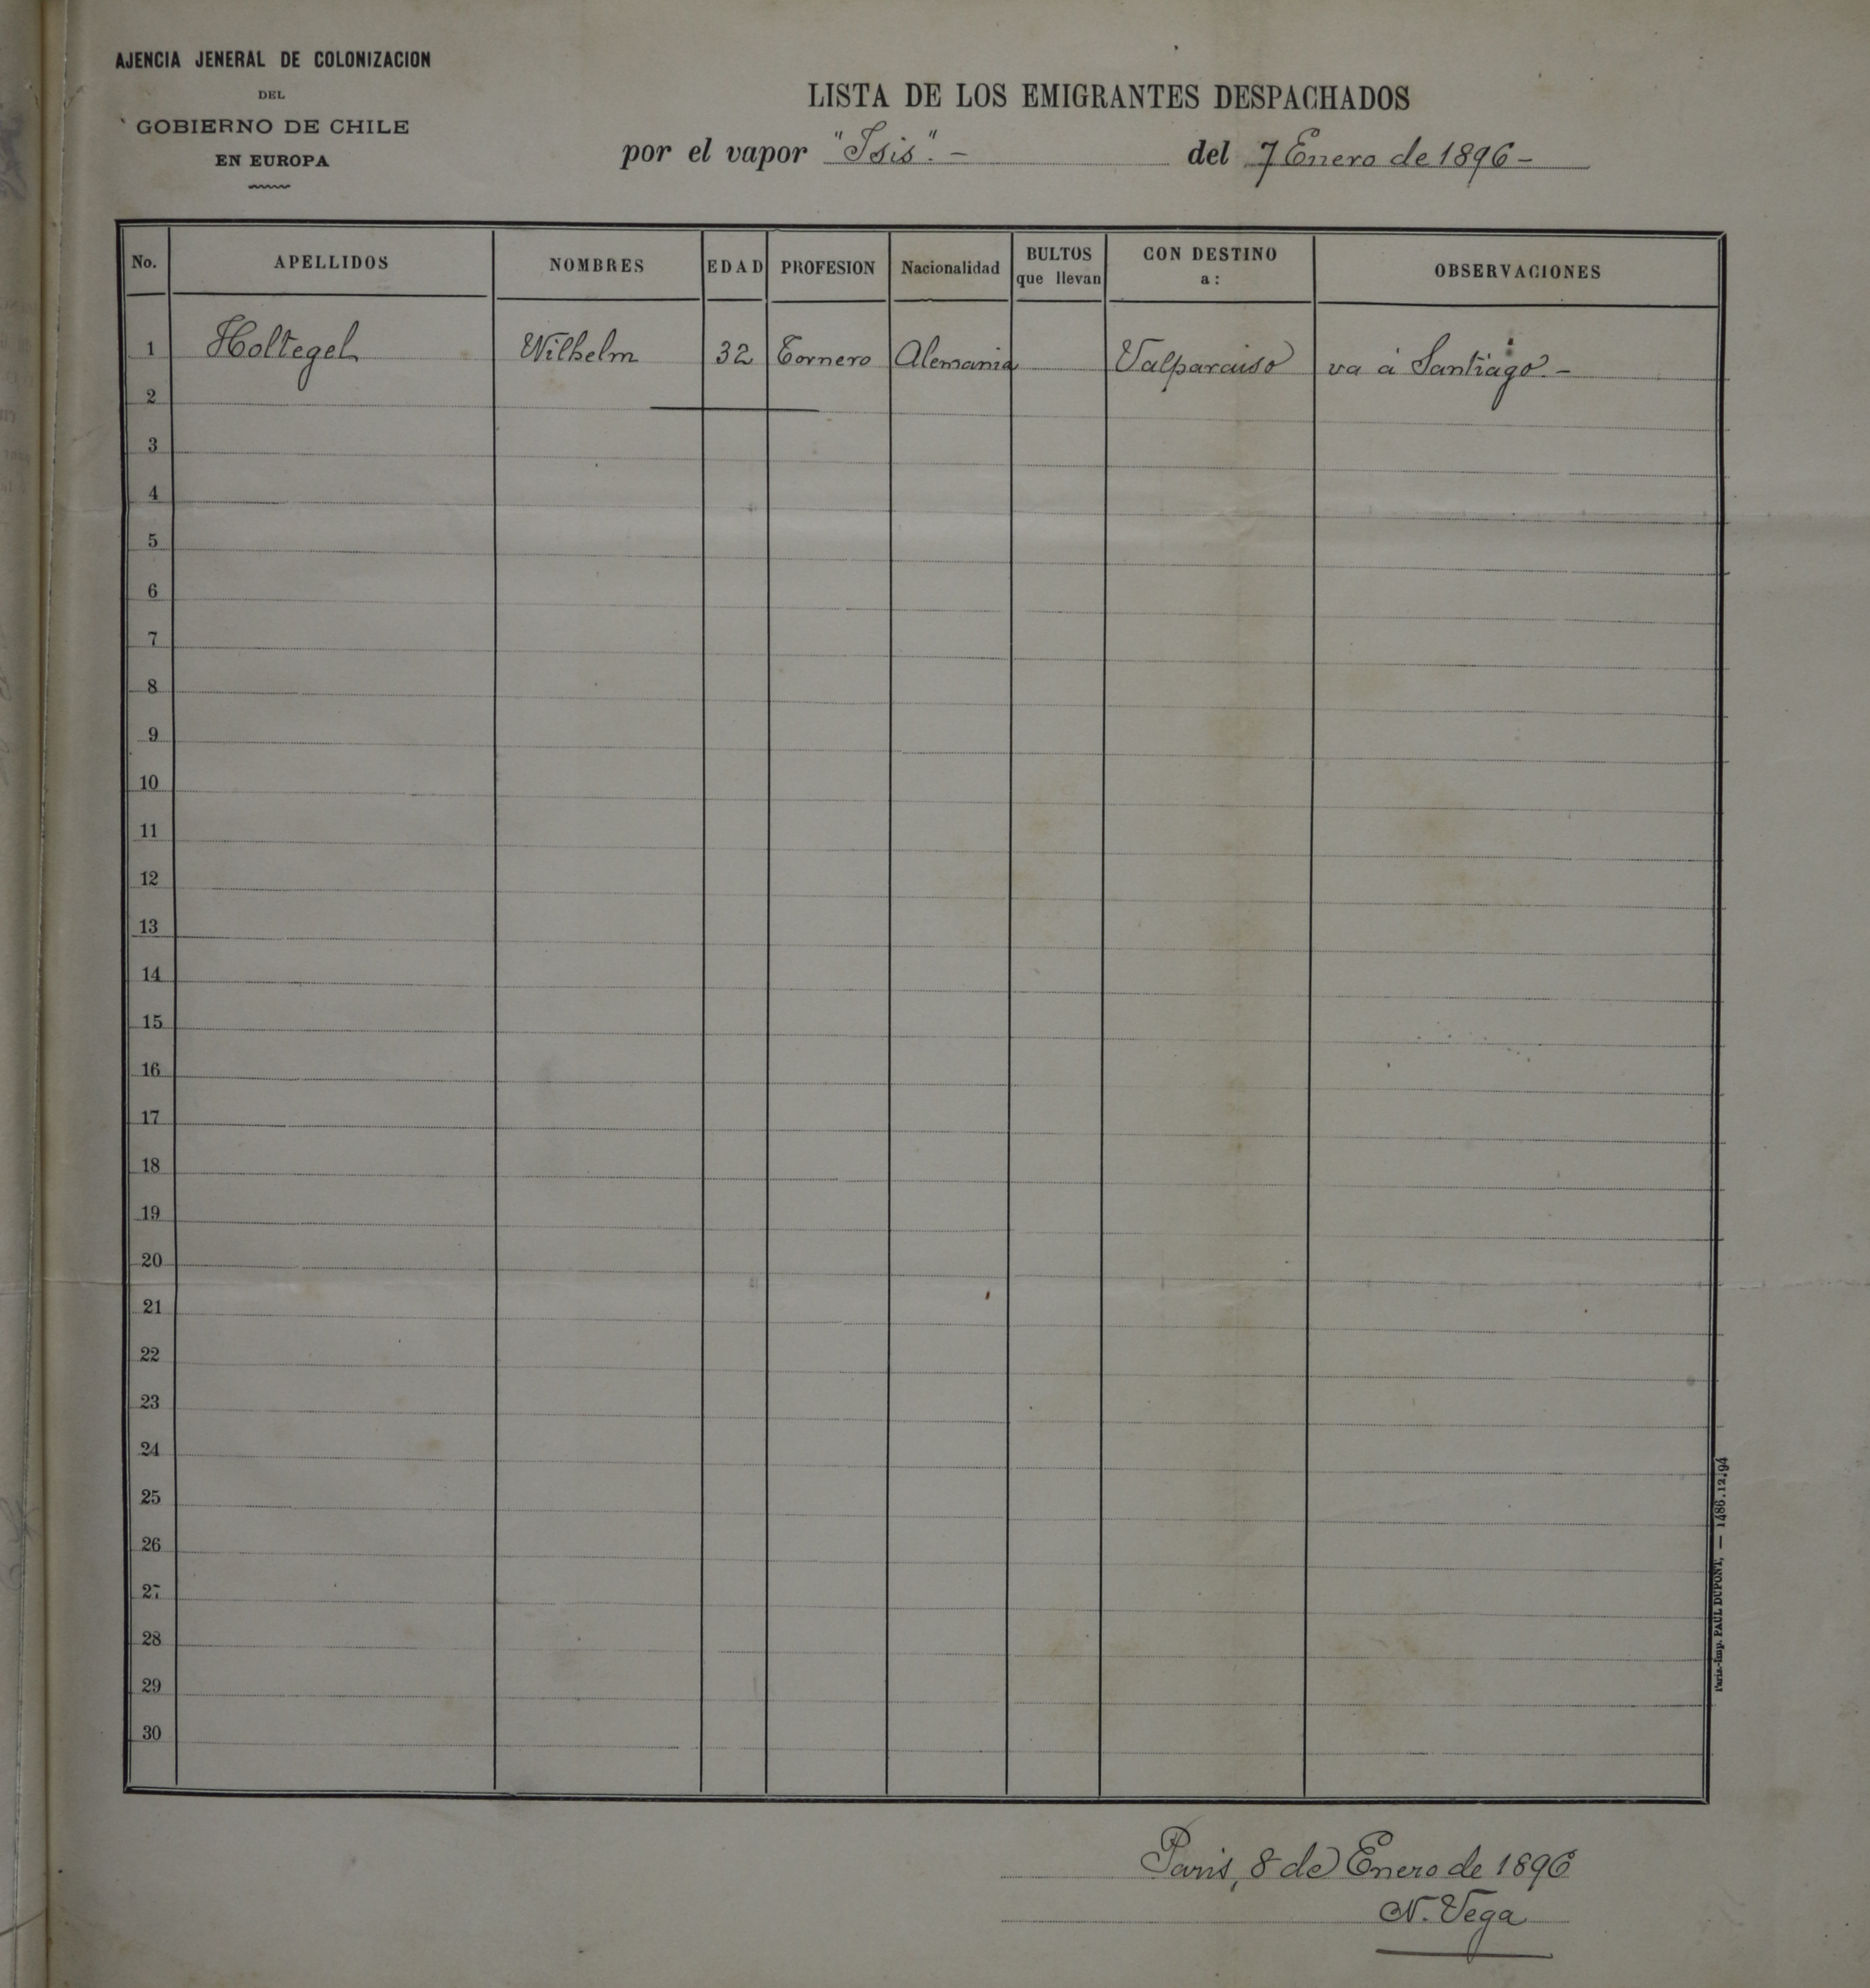 AJENCIA JENERAL DE COLONIZACION
DEL
GOBIERNO DE CHILE
EN EUROPA
LISTA DE LOS EMIGRANTES DESPACHADOS
por el vapor "Isis". - del 7 Enero de 1896 -
No. APELLIDOS NOMBRES EDAD PROFESION Nacionalidad BULTOS que llevan CON DESTINO a: OBSERVACIONES
1 Holtegel Wilhelm 32 Tornero Alemania Valparaiso va á Santiago. -
2
3
4
5
6
7
8
9
10
11
12
13
14
15
16
17
18
19
20
21
22
23
24
25
26
27
28
29
30
Paris.-Imp. PAUL DUPONT, — 1486.12.94
Paris, 8 de Enero de 1896
N. Vega